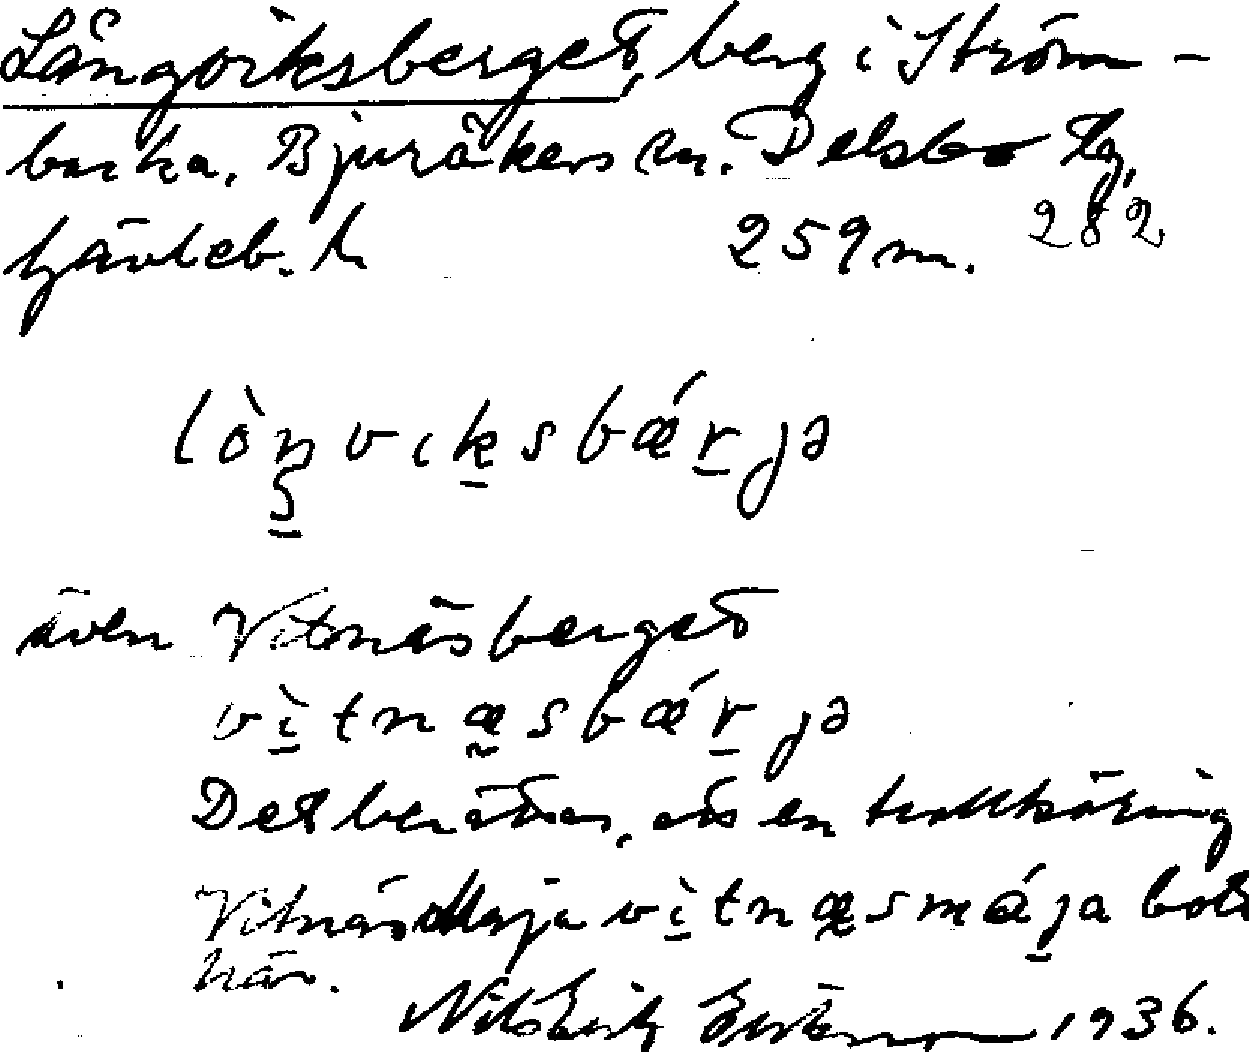 Långviksberget, berg i Ström-
backa. Bjuråkers sn. Delsbo tg,
Gävleb. l 259 m. 282
lòŋvıksbǽrjə
även Vitnäsberget
vìtnæsbǽrjə
Det berättas, att en trollkäring
Vitnäs Maja vìtnæsmája bott
här.
Nils Erik 1936.